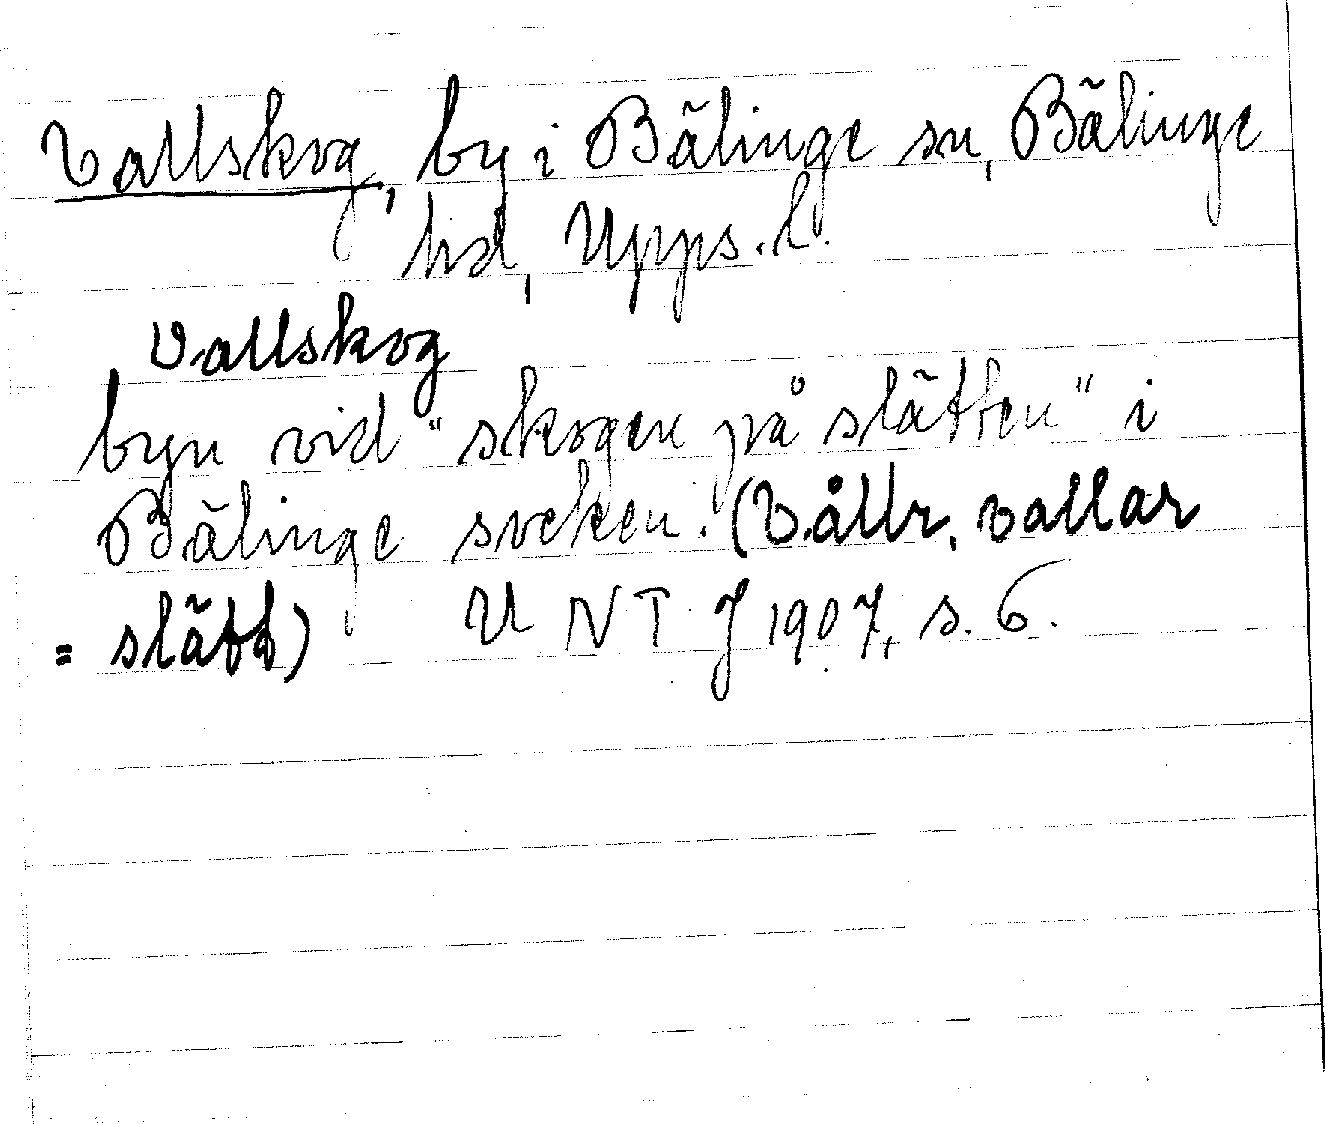 Vallskog, by i Bälinge sn, Bälinge
hd, Upps. l.
Vallskog
byn vid "skogen på slätten" i
Bälinge socken. (Vållr, vallar
= slätt) U N T J 1907, s. 6.